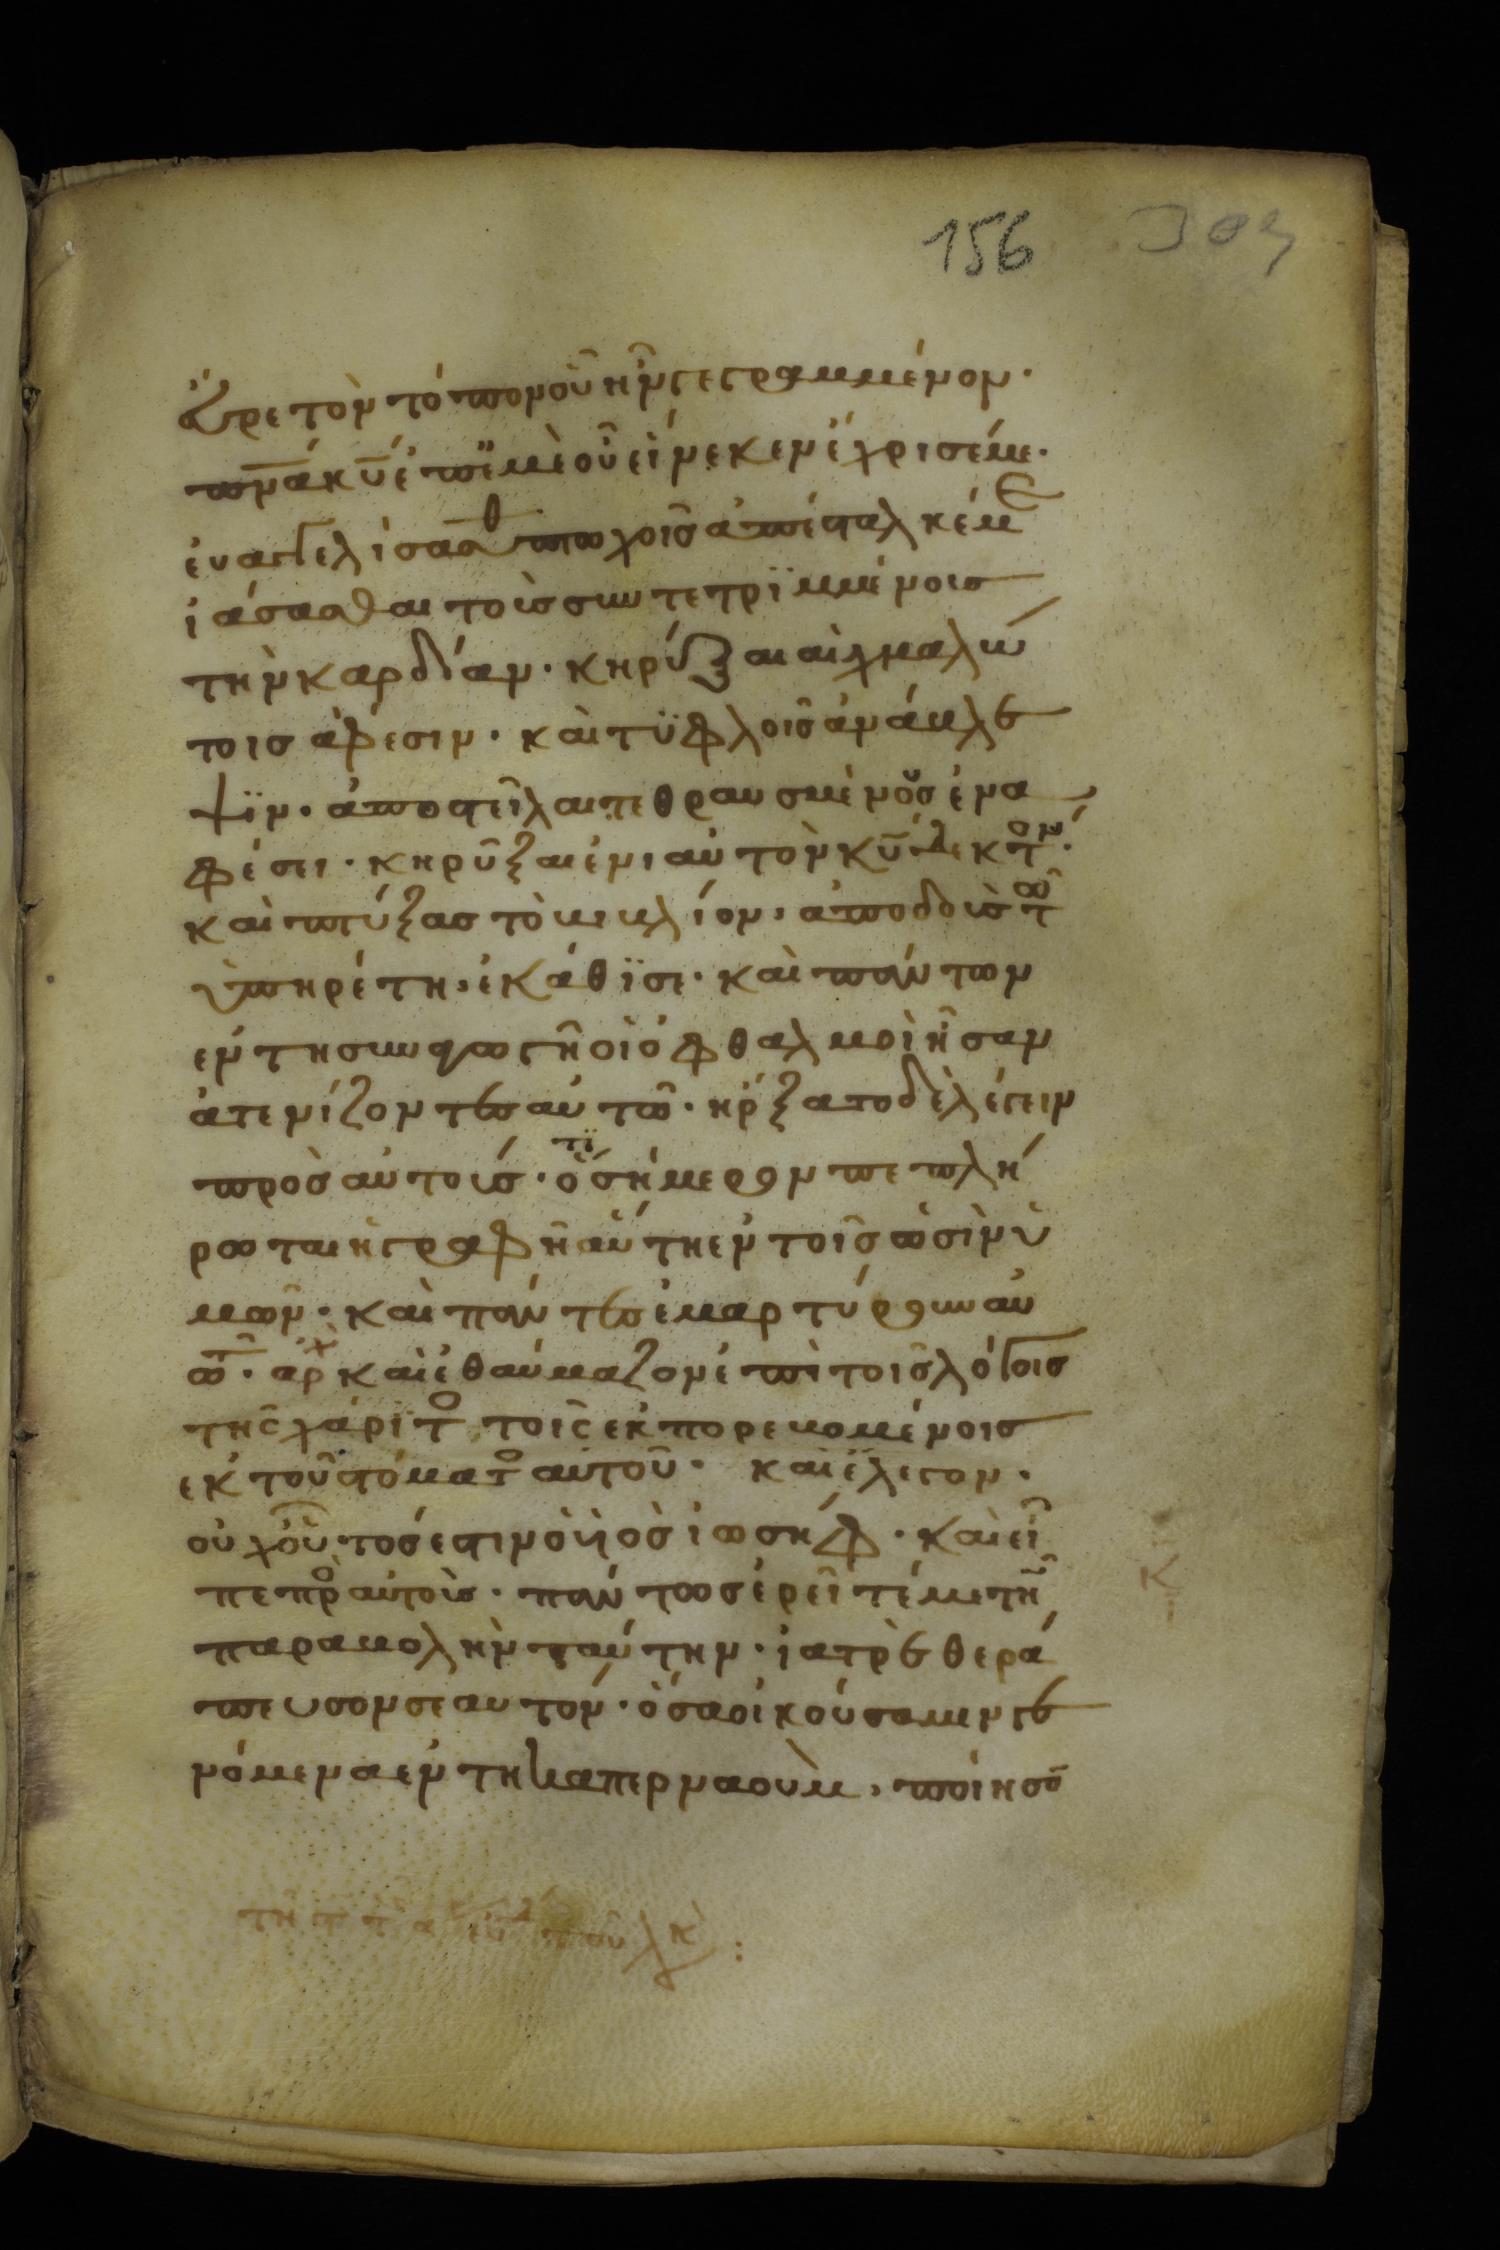 156 309
εὗρε τὸν τόπον οὗ ἦν γεγραμμένον·
πν̅α κ̅υ ἐπ' ἐμὲ οὗ εἵνεκεν ἔχρισέ με·
εὐαγγελίσασθ πτωχοῖς ἀπέσταλκέ με
ἰάσασθαι τοὺς συντετριμμένους
τὴν καρδίαν· κηρύξαι αἰχμαλώ
τοις ἄφεσιν· καὶ τυφλοῖς ἀνάβλε
ψϊν· ἀποστεῖλαι τεθραυσμένους ἐν α
φέσει· κηρῦξαι ἐνιαυτὸν κ̅υ δεκτόν·
καὶ πτύξας τὸ βιβλίον, ἀποδοὺς τῶ
ὑπηρέτη, ἐκάθϊσε· καὶ πάντων
ἐν τῆ συναγωγῆ οἱ ὀφθαλμοὶ ἦσαν
ἀτενίζοντες αὐτῶ· ἤρξατο δὲ λέγειν
πρὸς αὐτούς· ὅτϊ σήμερον πεπλή
ρωται ἡ γραφὴ αὕτη ἐν τοῖς ὠσὶν ὑ
μῶν· καὶ πάντες ἐμαρτύρουν αὐ
τῶ· αρχ καὶ ἐθαύμαζον ἐπὶ τοῖς λόγοις
τῆς χάριτο τοῖς ἐκπορευομένοις
ἐκ τοῦ στόματο αὐτοῦ· καὶ ἔλεγον·
οὐχ οὗτός ἐστιν ὁ υἱὸς ἰωσήφ· καὶ εἶ
πε πρὸ αὐτούς· πάντως ἐρεῖτέ μοι τὴν
παραβολὴν ταύτην· ἰατρὲ θερά
πευσον σεαυτόν· ὅσα ἠκούσαμεν γε
νόμενα ἐν τῆ καπερναούμ, ποίησον